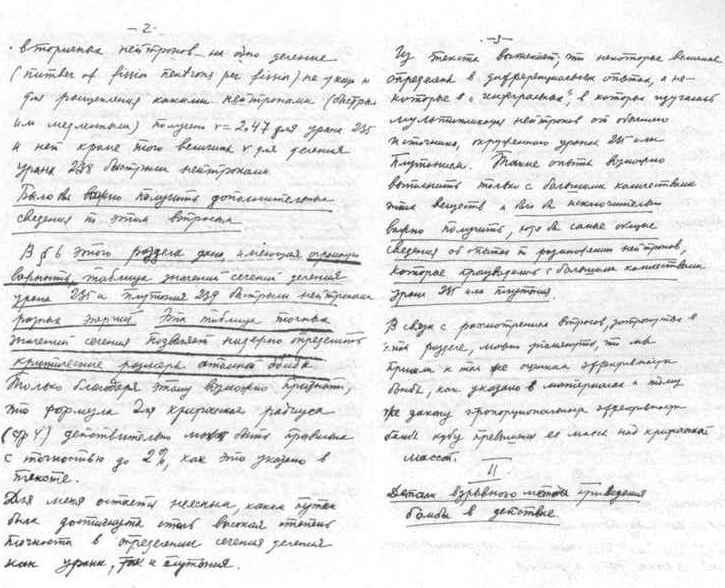 - 2 -
вторичных нейтронов на одно деление
(number of fission neutrons per fission) не
для расщепления какими нейтронами (быстры-
ми медленными) получено ν = 2.47 для урана 235
и нет кроме того величина ν для деления
урана 238 быстрыми нейтронами
Было бы важно получить дополнительные
сведения по этим вопросам
В § 6 этого раздела дана, имеющая огромную
важность, таблица значений сечений деления
урана 235 и плутония 239 быстрыми нейтронами
разных энергий. Эта таблица точных
значений сечения позволяет надежно определить
критические размеры атомной бомбы
Только благодаря этому возможно признать,
что формула для критического радиуса
(стр 4) действительно может быть правильна
с точностью до 2%, как это указано в
тексте.
Для меня остается неясным, каким путем
была достигнута столь высокая степень
точности в определении сечения деления
как урана, так и плутония.
- 3 -
Из текста вытекает, что некоторые величины
определены в дифференциальных опытах, а не-
которые в "интегральных", в которых изучалась
мультипликация нейтронов от обычного
источника, окруженного ураном 235 или
плутонием. Такие опыты возможно
выполнить только с большими количествами
этих веществ и было бы исключительно
важно получить, хотя бы самые общие
сведения об опытах по размножению нейтронов,
которые произведены с большими количествами
урана 235 или плутония.
В связи с рассмотрением вопросов, затронутых в
этом разделе, можно отметить, что мы
пришли к той же оценке эффективности
бомбы, как указано в материалах и тому
же закону пропорциональности эффективности
бомбы кубу превышения ее массы над критической
массой.
II
Детали взрывного метода приведения
бомбы в действие